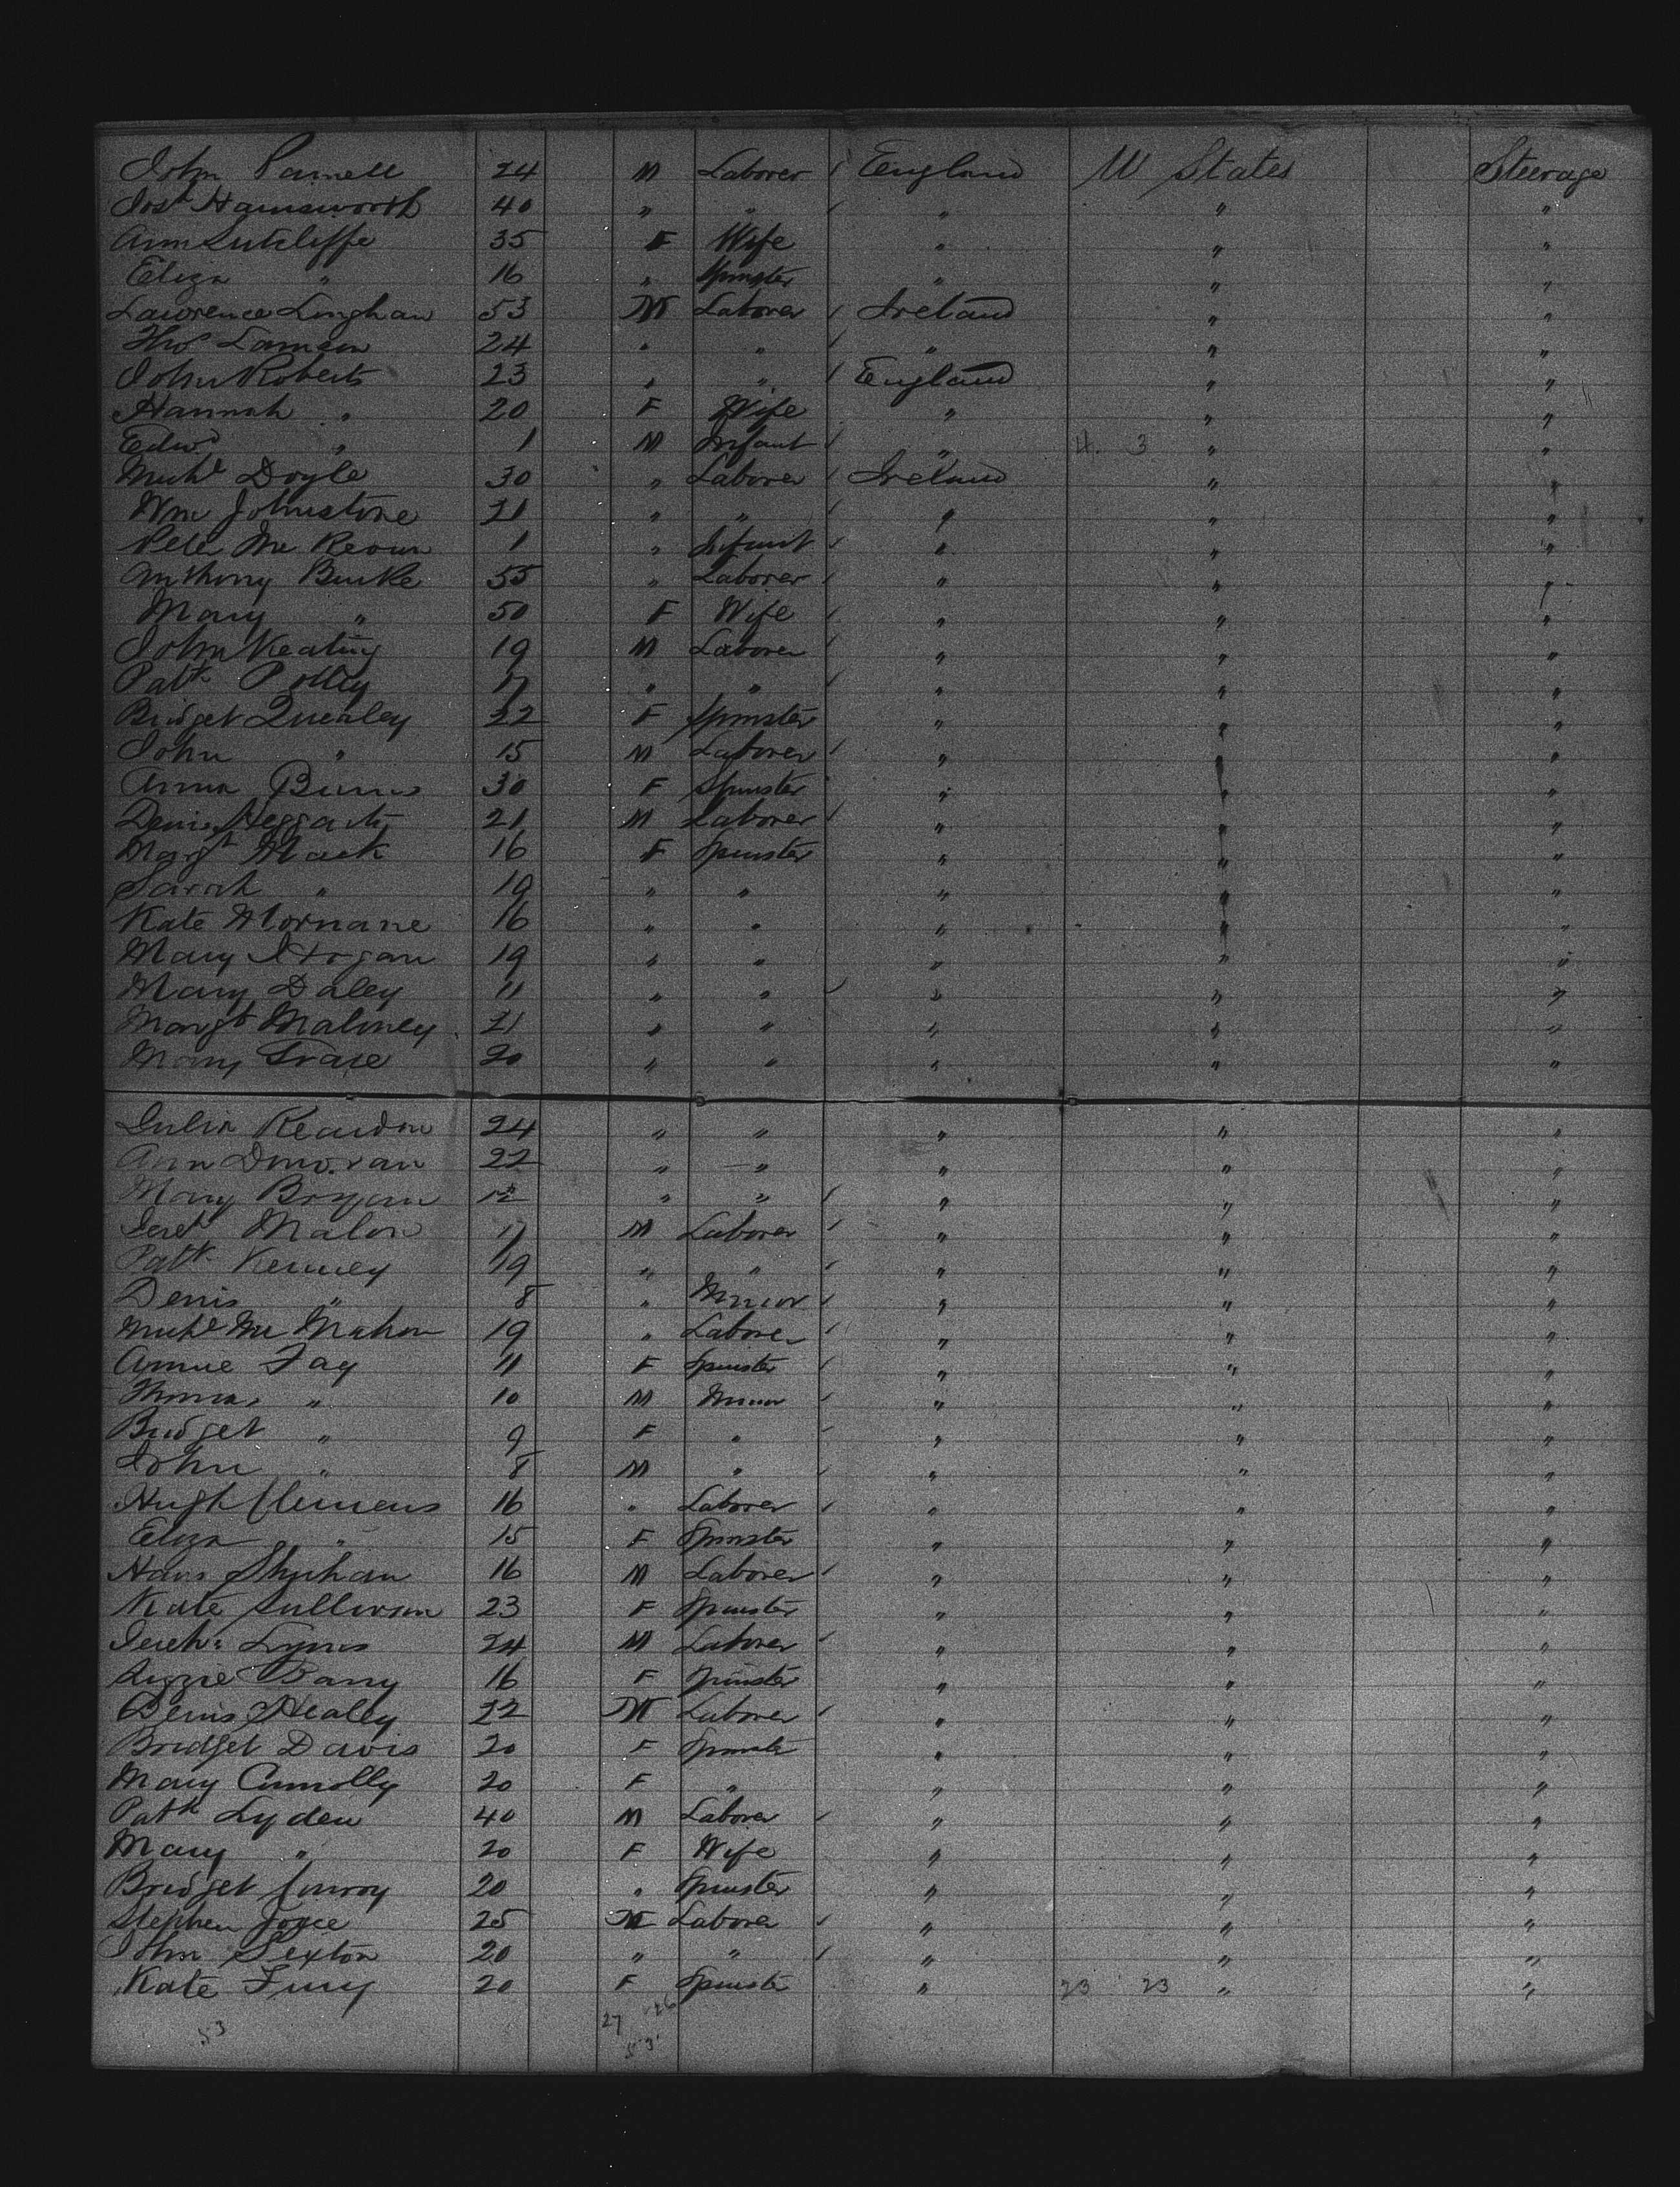 John Parnell 24 M Laborer England U States Steerage
Josh Hainsworth 40 " " " " "
Ann Sutcliffe 35 F Wife " " "
Eliza " 16 " Spinster " " "
Lawrence Linghan 53 M Laborer Ireland " "
Thos 24 " " " " "
John Roberts 23 " " England " "
Hannah " 20 F Wife " " "
Edwd " 1 M Infant " 4 3 " "
Michl Doyle 30 " Laborer Ireland " "
Wm Johnstone 21 " " " " "
Peter Mc Keown 1 " Infant " " "
Anthony Burke 55 " Laborer " " "
Mary " 50 F Wife " " "
John Keating 19 M Laborer " " "
Patk 17 " " " " "
Bridget Quealey 22 F Spinster " " "
John " 15 M Laborer " " "
Anna Burns 30 F Spinster " " "
Denis Heggarty 21 M Laborer " " "
Margt Mack 16 F Spinster " " "
Sarah " 19 " " " " "
Kate Mornane 16 " " " " "
Mary Hogan 19 " " " " "
Mary Daley 11 " " " " "
Margt Maloney 21 " " " " "
Mary Grace 20 " " " " "
Julia Reardon 24 " " " " "
Ann Donovan 22 " " " " "
Mary Bryan 12 " " " " "
Jereh Malon 17 M Laborer " " "
Patk Kenney 19 " " " " "
Denis " 8 " Minor " " "
Michl Mc Mahon 19 " Laborer " " "
Annie Fay 11 F Spinster " " "
Thomas " 10 M Minor " " "
Bridget " 9 F " " " "
John " 8 M " " " "
Hugh Clemens 16 " Laborer " " "
Eliza " 15 F Spinster " " "
Hans Shuhan 16 M Laborer " " "
Kate Sullivan 23 F Spinster " " "
Jereh: Lynes 24 M Laborer " " "
Lizzie Barry 16 F Spinster " " "
Denis Healey 22 M Laborer " " "
Bridget Davis 20 F Spinster " " "
Mary Connolly 20 F " " " "
Patk Lyden 40 M Laborer " " "
Mary " 20 F Wife " " "
Bridget Conroy 20 " Spinster " " "
Stephen Joyce 25 M Laborer " " "
John Sexton 20 " " " " "
Kate Fury 20 F Spinster " 23 23 " "
27 26
53 53